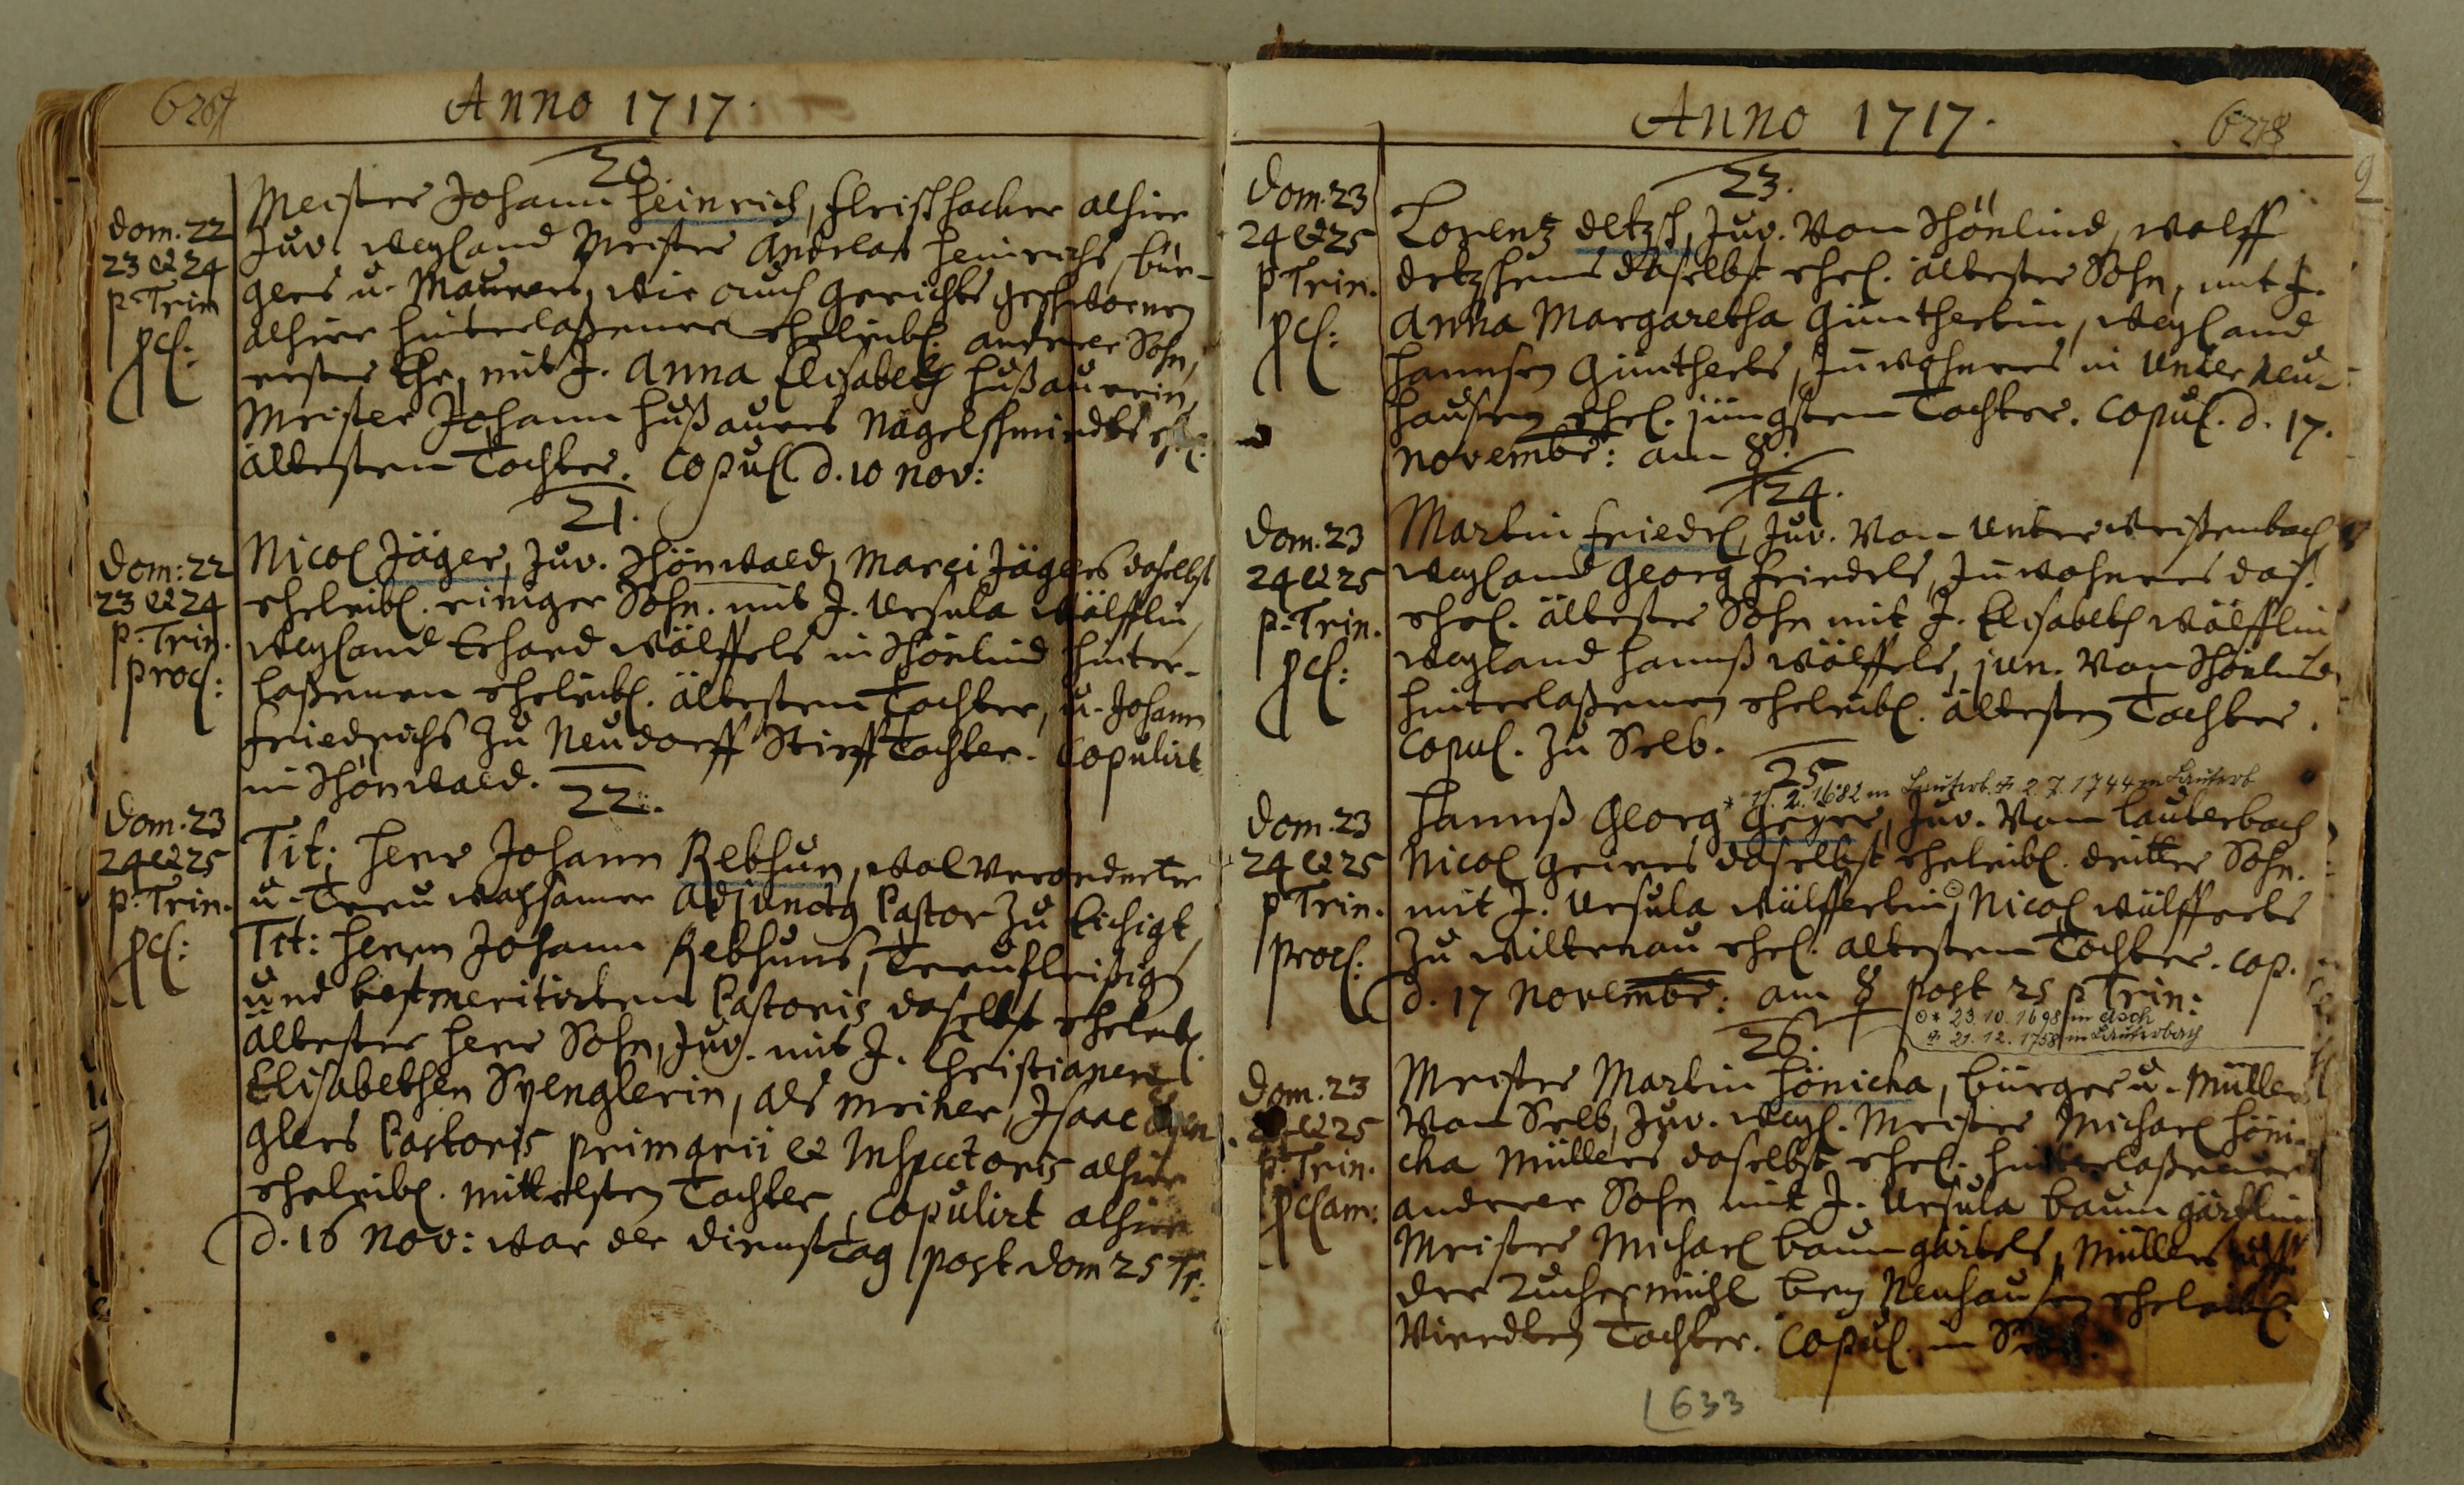 Anno 1717.
20.
Dom. 22
23 & 24
p. Trin
pcl:
Meister Johann Heinrich, Fleischhacker alhier
Juv. weyland Meister Andreas Heinrichs, bür-
gers u. Maurers, wie auch Gerichts geschwornen
alhier hinterlaßener eheleibl. anderer Sohn,
erster Ehe, mit J. Anna Elisabeth Hußauerin,
Meister Johann Hußauers Nagelschmiedts ehel.
ältesten Tochter. Copul. d. 10 Nov:
21.
Dom: 22
23 & 24
p. Trin.
procl:
Nicol Jäger, Juv. Schönwald, Marci Jägers daselbst
eheleibl. einiger Sohn. mit J. Ursula Wölfflin,
weyland Erhard Wölffels in Schönlind hinter-
laßenen eheleibl. ältesten Tochter, u. Johann
Friedrichs zu Neudorff Stieff Tochter. Copulirt
in Schönwald.
22.
Dom. 23
24 & 25
p. Trin.
pcl:
Tit: Herr Johann Rebhun, wolverordneter
u. Treu wachsamer Adjunctg Pastor zu Eichigt,
Tit: Herrn Johann Rebhuns, Treufleißigen
und bestmeritirten Pastoris daselbst eheleibl.
ältester Herr Sohn, Juv. mit J. Christianen
Elisabethen Spenglerin, als meiner, Isaac Spen-
glers Pastoris primarii & Inspectoris alhier
eheleibl. mittelsten Tochter, copulirt alhier
d. 16 Nov: war der Dienstag post dom 25 Tr:
Anno 1717.
628
23.
Dom. 23
24 & 25
p Trin.
pcl:
Lorenz Detzsch, Juv. Von Schönlind, Wolff
Detzschens daselbst ehel. ältester Sohn, mit J.
Anna Margaretha Güntherlin, weyland
Hannsen Güntherls, Inwohners in Unter Neu-
hausen ehel. jüngsten Tochter. Copul. d. 17.
Novembr: am ☿.
24.
Dom. 23
24 & 25
p. Trin.
pcl:
Martin Friedel, Juv. Von Unterweißenbach,
weyland Georg Friedels, Inwohners das.
ehel. ältester Sohn mit J. Elisabeth Wölfflin
weyland Hannß Wölffels, jun. Von Schönlind
hinterlaßenen eheleibl. ältesten Tochter.
Copul. zu Selb.
25
* 11. 2. 1682 in Lauterb. + 2 7. 1744 in Lauterb
Dom. 23
24 & 25
p Trin.
procl:
Hannß Georg Geyer, Juv. Von Lauterbach
Nicol Geiers daselbst eheleibl. dritter Sohn.
mit J. Ursula Wülfferlin, Nicol Wülfferls
zu Wiltenau ehel. ältesten Tochter. Cop.
d. 17 Novembr: am ☿ post 25 p Trin:
⊙* 23. 10. 1698 in Asch
+ 21. 12. 1758 in Lauterbach
26.
Dom. 23
24 & 25
p. Trin.
pclam:
Meister Martin Hönicha, bürger u. Müller
Von Selb, Juv. weyl. Meister Michael Höni-
cha Müllers daselbst ehel. hinterlaßener
anderer Sohn mit J. Ursula Baumgärtlin
Meister Michael Baumgärtels, Müllers uff
der Zuchermühl bey Neuhausen eheleibl.
Vierdten Tochter. Copul. in
633